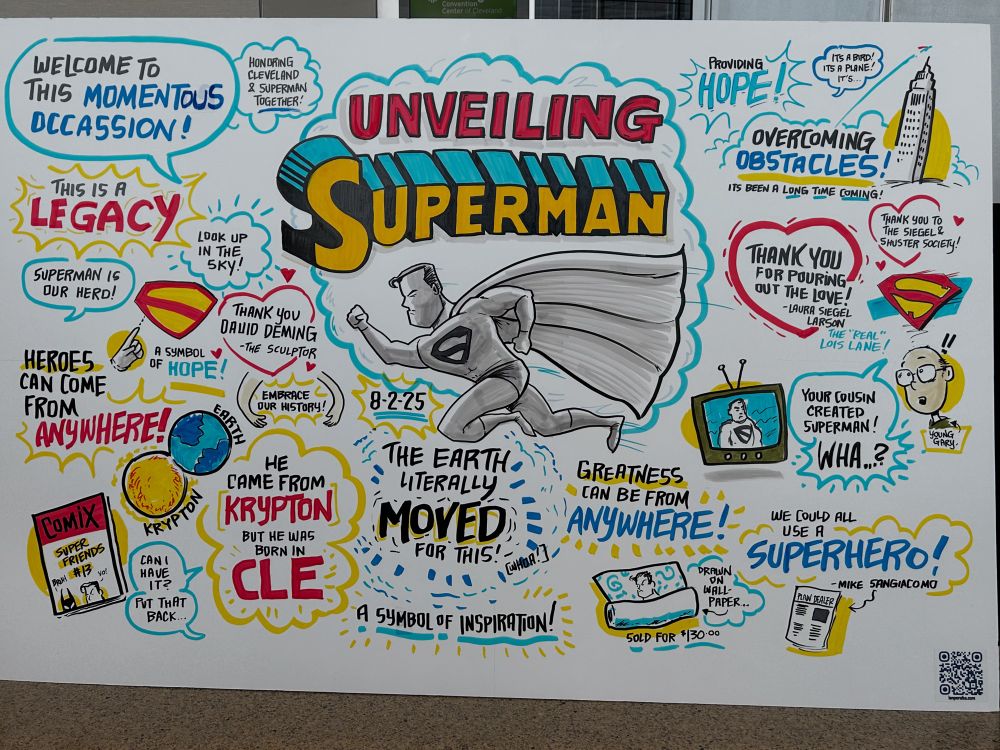 Convention
Center of Cleveland
WELCOME TO
THIS MOMENTOUS
OCCASSION!
HONORING
CLEVELAND
& SUPERMAN
TOGETHER!
UNVEILING
SUPERMAN
PROVIDING
HOPE!
IT'S A BIRD!
IT'S A PLANE!
IT'S...
OVERCOMING
OBSTACLES!
ITS BEEN A LONG TIME COMING!
THIS IS A
LEGACY
LOOK UP
IN THE
SKY!
SUPERMAN IS
OUR HERO!
A SYMBOL
OF HOPE!
THANK YOU
DAVID DEMING
-THE SCULPTOR
THANK YOU
FOR POURING
OUT THE LOVE!
-LAURA SIEGEL
LARSON
THE "REAL"
LOIS LANE!
THANK YOU TO
THE SIEGEL &
SHUSTER SOCIETY!
S
S
S
HEROES
CAN COME
FROM
ANYWHERE!
EMBRACE
OUR HISTORY!
8-2-25
EARTH
KRYPTON
HE
CAME FROM
KRYPTON
BUT HE WAS
BORN IN
CLE
THE EARTH
LITERALLY
MOVED
FOR THIS!
[WHOA!]
A SYMBOL OF INSPIRATION!
GREATNESS
CAN BE FROM
ANYWHERE!
YOUR COUSIN
CREATED
SUPERMAN!
WHA..?
!!
YOUNG
GARY.
COMIX
SUPER
FRIENDS
#13
BRUH
YO!
CAN I
HAVE
IT?
PUT THAT
BACK...
DRAWN
ON
WALL-
PAPER...
SOLD FOR $130.00
WE COULD ALL
USE A
SUPERHERO!
-MIKE SANGIACOMO
PLAIN DEALER